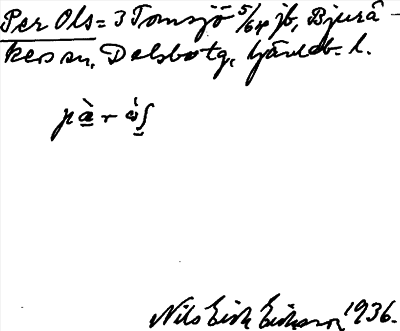 Per Ols = 3 Tomsjö 5/64 jb, Bjurå-
ker sn, Delsbo tg, Gävleb. l.
pàr òʃ
Nils Erik Eriksson 1936.